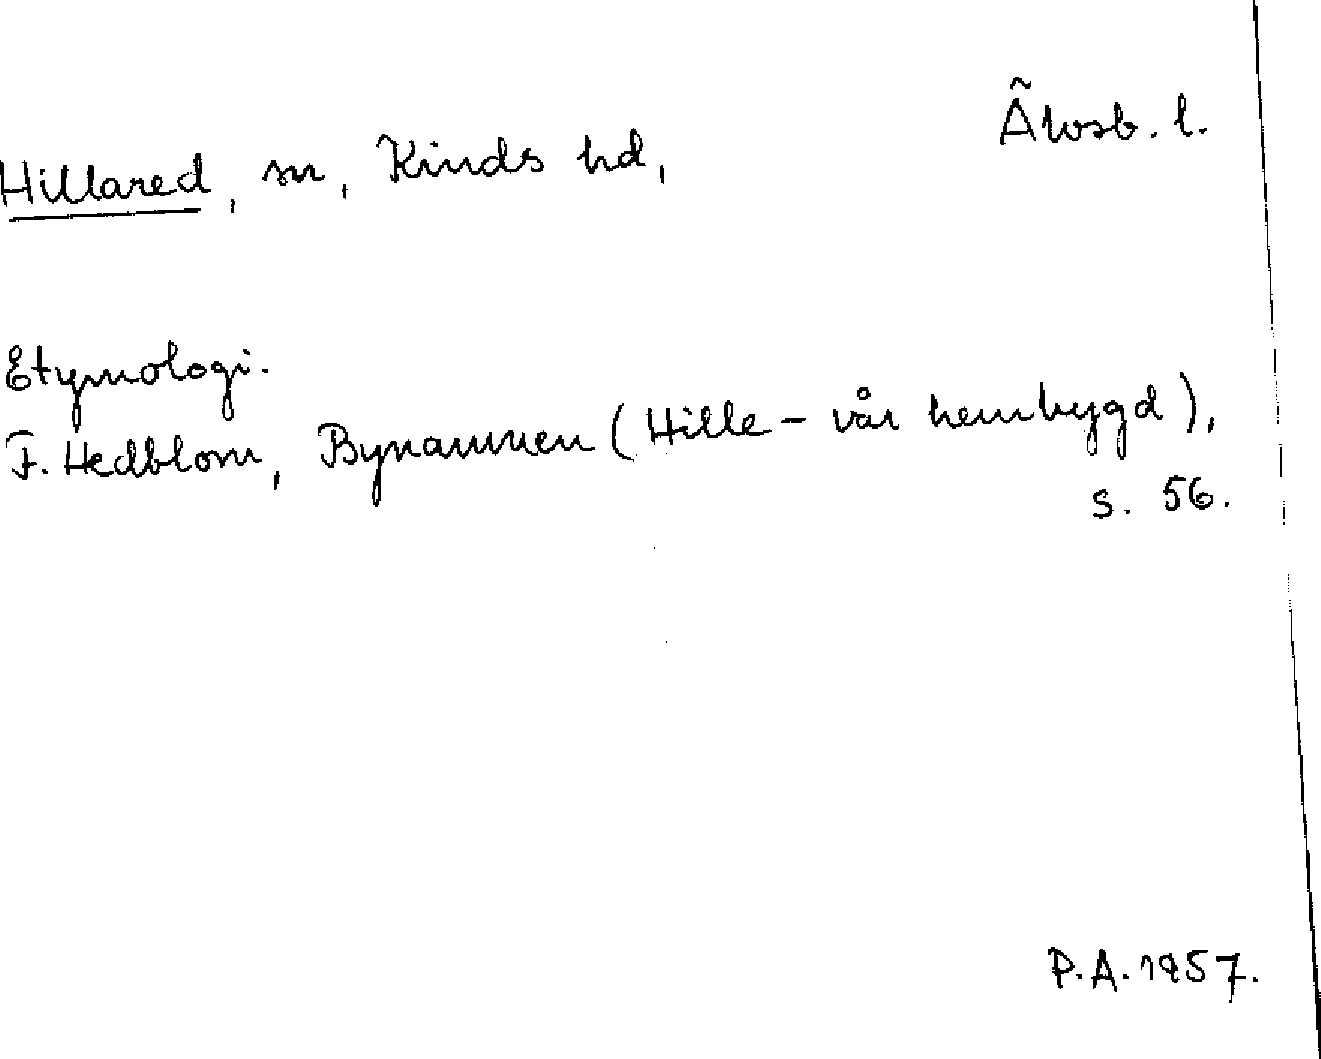 Hillared, sn, Kinds hd, Älvsb. l.
Etymologi.
F. Hedblom, Bynamnen (Hille – vår hembygd),
s. 56.
P.A. 1957.